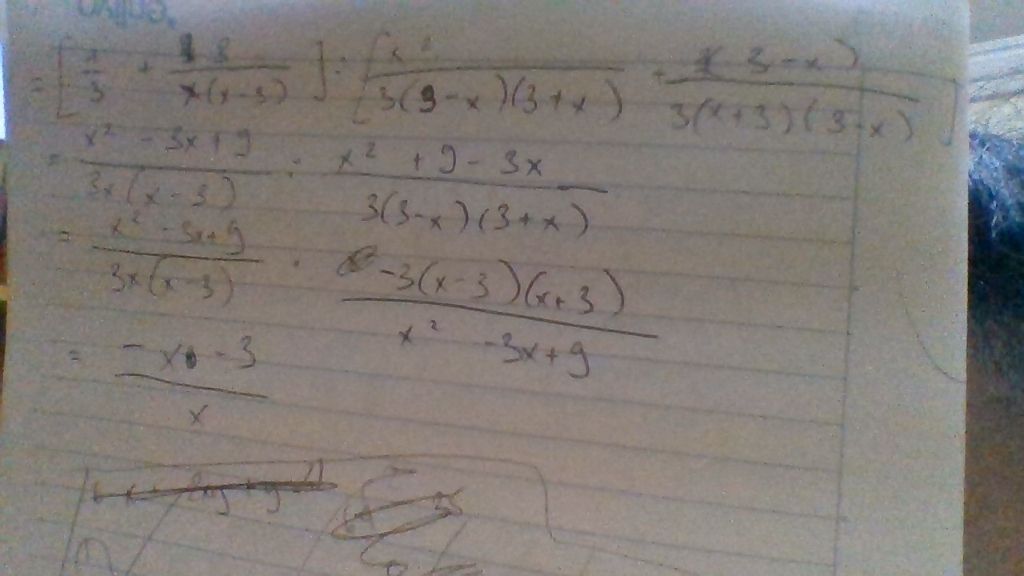 = [ x/3 + 3/x(x-3) ] : [ x²/3(3-x)(3+x) + 3(3-x)/3(x+3)(3-x) ]
= x² - 3x + 9/3x(x-3) : x² + 9 - 3x/3(3-x)(3+x)
= x² - 3x + 9/3x(x-3) . -3(x-3)(x+3)/x² - 3x + 9
= -x - 3/x